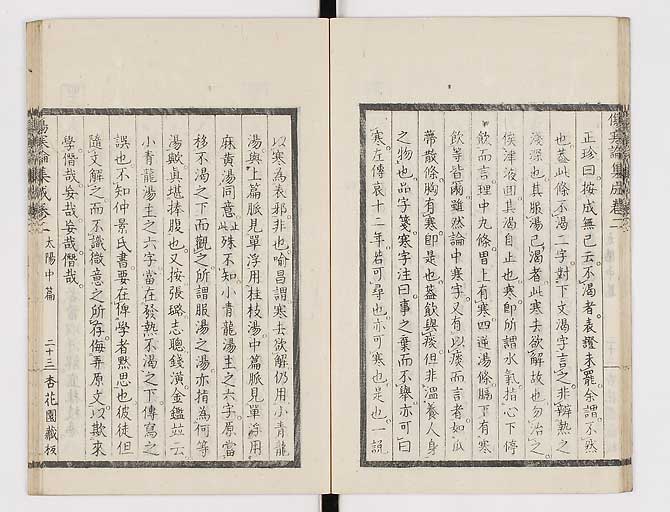 傷寒論集成卷二
正珍曰按成無己云不渴者表證未罷余謂不然
也蓋此條不渴二字對下文渴字言之非辨熱之
淺深也其服湯已渴者此寒去欲解故也勿治之
俟津液回其渴自止也寒即所謂水氣指心下停
飲而言理中九條胃上有寒四逆湯條膈下有寒
飲等皆爾雖然論中寒字又有以痰而言者如瓜
蒂散條胸有寒即是也蓋飲與痰但非溫養人身
之物也品字箋寒字注曰事之棄而不舉亦可曰
寒左傳哀十二年若可尋也亦可寒也是也一說
以寒為表邪非也喻昌謂寒去欲解仍用小青龍
湯與上篇脈見單浮用桂枝湯中篇脈見單浮用
麻黃湯同意止此殊不知小青龍湯主之六字原當
移不渴之下而觀之所謂服湯之湯亦指為何等
湯歟真堪捧腹也又按張璐志聰錢潢金鑑竝云
小青龍湯主之六字當在發熱不渴之下傳寫之
誤也不知仲景氏書要在俾學者默思也彼徒但
隨文解之而不識微意之所存侮弄原文以欺來
學僭哉妄哉妄哉僭哉
傷寒論集成卷二 太陽中篇 二十三 杏花園藏板